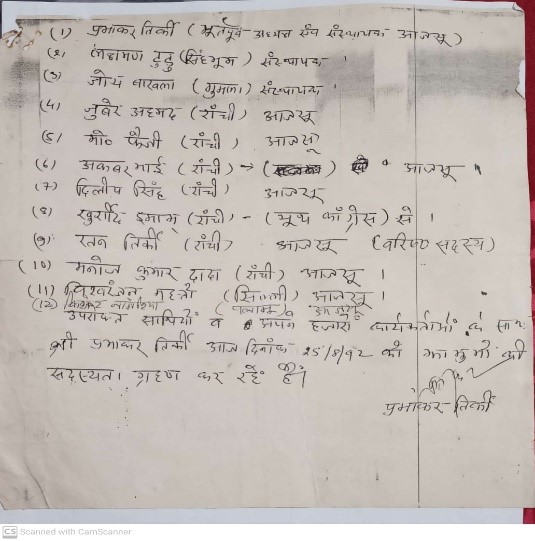 (1) प्रभाकर तिर्की (भूतपूर्व अध्यक्ष एवं संस्थापक आजसू)
(2) लक्ष्मण टुडु (सिंहभूम) संस्थापक ।
(3) जोय बाखला (गुमला) संस्थापक ।
(4) जुबेर अहमद (राँची) आजसू
(5) मो० फैजी (राँची) आजसू
(6) अकबर भाई (राँची) → आजसू
(7) दिलीप सिंह (राँची) आजसू
(8) खुर्शीद इमाम (राँची) - (यूथ काँग्रेस) से ।
(9) रतन तिर्की (राँची) आजसू (वरिष्ठ सदस्य)
(10) मनोज कुमार दादा (राँची) आजसू ।
(11) विश्वरंजन महतो (सिल्ली) आजसू ।
(12)
उपरोक्त साथियों व अपने हजारों कार्यकर्ताओं के साथ
श्री प्रभाकर तिर्की आज दिनांक 25/8/92 को झामुमो की
सदस्यता ग्रहण कर रहें हैं।
प्रभाकर तिर्की
CS Scanned with CamScanner